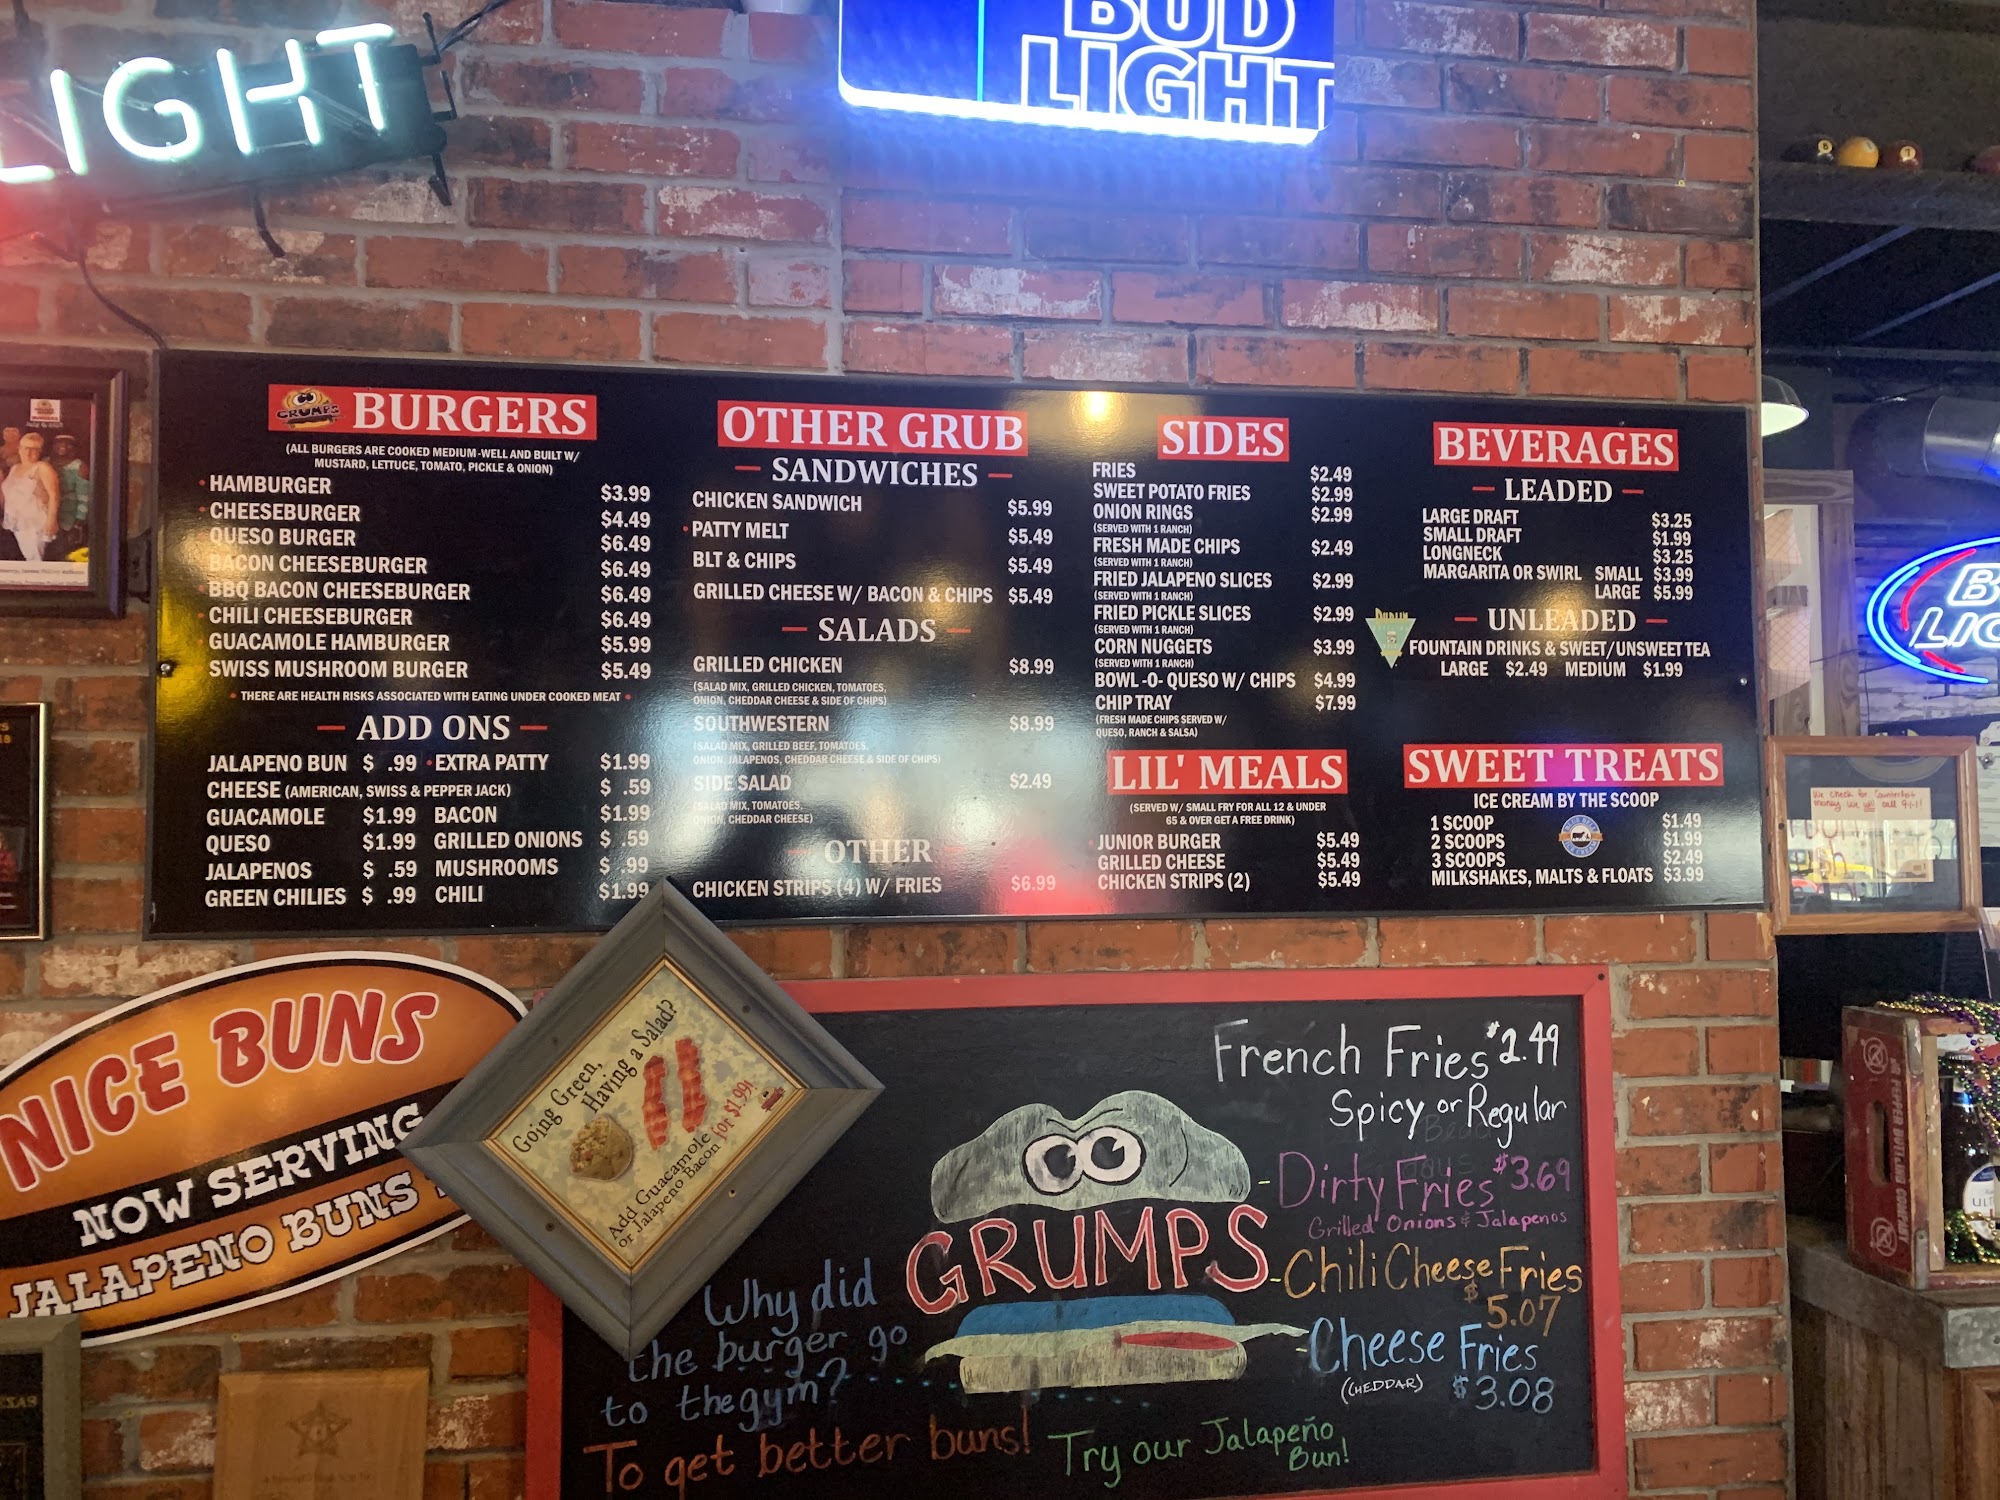 LIGHT
BUD
LIGHT
GRUMPS BURGERS
(ALL BURGERS ARE COOKED MEDIUM-WELL AND BUILT W/
MUSTARD, LETTUCE, TOMATO, PICKLE & ONION)
• HAMBURGER $3.99
• CHEESEBURGER $4.49
QUESO BURGER $6.49
BACON CHEESEBURGER $6.49
BBQ BACON CHEESEBURGER $6.49
• CHILI CHEESEBURGER $6.49
GUACAMOLE HAMBURGER $5.99
SWISS MUSHROOM BURGER $5.49
• THERE ARE HEALTH RISKS ASSOCIATED WITH EATING UNDER COOKED MEAT •
— ADD ONS —
JALAPENO BUN $ .99 • EXTRA PATTY $1.99
CHEESE (AMERICAN, SWISS & PEPPER JACK) $ .59
GUACAMOLE $1.99 BACON $1.99
QUESO $1.99 GRILLED ONIONS $ .59
JALAPENOS $ .59 MUSHROOMS $ .99
GREEN CHILIES $ .99 CHILI $1.99
OTHER GRUB
— SANDWICHES —
CHICKEN SANDWICH $5.99
• PATTY MELT $5.49
BLT & CHIPS $5.49
GRILLED CHEESE W/ BACON & CHIPS $5.49
— SALADS —
GRILLED CHICKEN $8.99
(SALAD MIX, GRILLED CHICKEN, TOMATOES,
ONION, CHEDDAR CHEESE & SIDE OF CHIPS)
SOUTHWESTERN $8.99
(SALAD MIX, GRILLED BEEF, TOMATOES,
ONION, JALAPENOS, CHEDDAR CHEESE & SIDE OF CHIPS)
SIDE SALAD $2.49
(SALAD MIX, TOMATOES,
ONION, CHEDDAR CHEESE)
— OTHER —
CHICKEN STRIPS (4) W/ FRIES $6.99
SIDES
FRIES $2.49
SWEET POTATO FRIES $2.99
ONION RINGS $2.99
(SERVED WITH 1 RANCH)
FRESH MADE CHIPS $2.49
(SERVED WITH 1 RANCH)
FRIED JALAPENO SLICES $2.99
(SERVED WITH 1 RANCH)
FRIED PICKLE SLICES $2.99
(SERVED WITH 1 RANCH)
CORN NUGGETS $3.99
(SERVED WITH 1 RANCH)
BOWL -O- QUESO W/ CHIPS $4.99
CHIP TRAY $7.99
(FRESH MADE CHIPS SERVED W/
QUESO, RANCH & SALSA)
LIL' MEALS
(SERVED W/ SMALL FRY FOR ALL 12 & UNDER
65 & OVER GET A FREE DRINK)
JUNIOR BURGER $5.49
GRILLED CHEESE $5.49
CHICKEN STRIPS (2) $5.49
BEVERAGES
— LEADED —
LARGE DRAFT $3.25
SMALL DRAFT $1.99
LONGNECK $3.25
MARGARITA OR SWIRL SMALL $3.99
LARGE $5.99
DUBLIN
— UNLEADED —
FOUNTAIN DRINKS & SWEET/UNSWEET TEA
LARGE $2.49 MEDIUM $1.99
SWEET TREATS
ICE CREAM BY THE SCOOP
1 SCOOP $1.49
2 SCOOPS $1.99
3 SCOOPS $2.49
MILKSHAKES, MALTS & FLOATS $3.99
We check for Counterfeit
money. We will call 911!
NICE BUNS
NOW SERVING
JALAPENO BUNS
Going Green,
Having a Salad?
Add Guacamole
or Jalapeno Bacon for $1.99!
French Fries $2.49
Spicy or Regular
- Dirty Fries $3.69
Grilled Onions & Jalapenos
GRUMPS
- Chili Cheese Fries
$5.07
- Cheese Fries
(CHEDDAR) $3.08
Why did
the burger go
to the gym?
To get better buns!
Try our Jalapeño
Bun!
DR PEPPER BOTTLING COMPANY